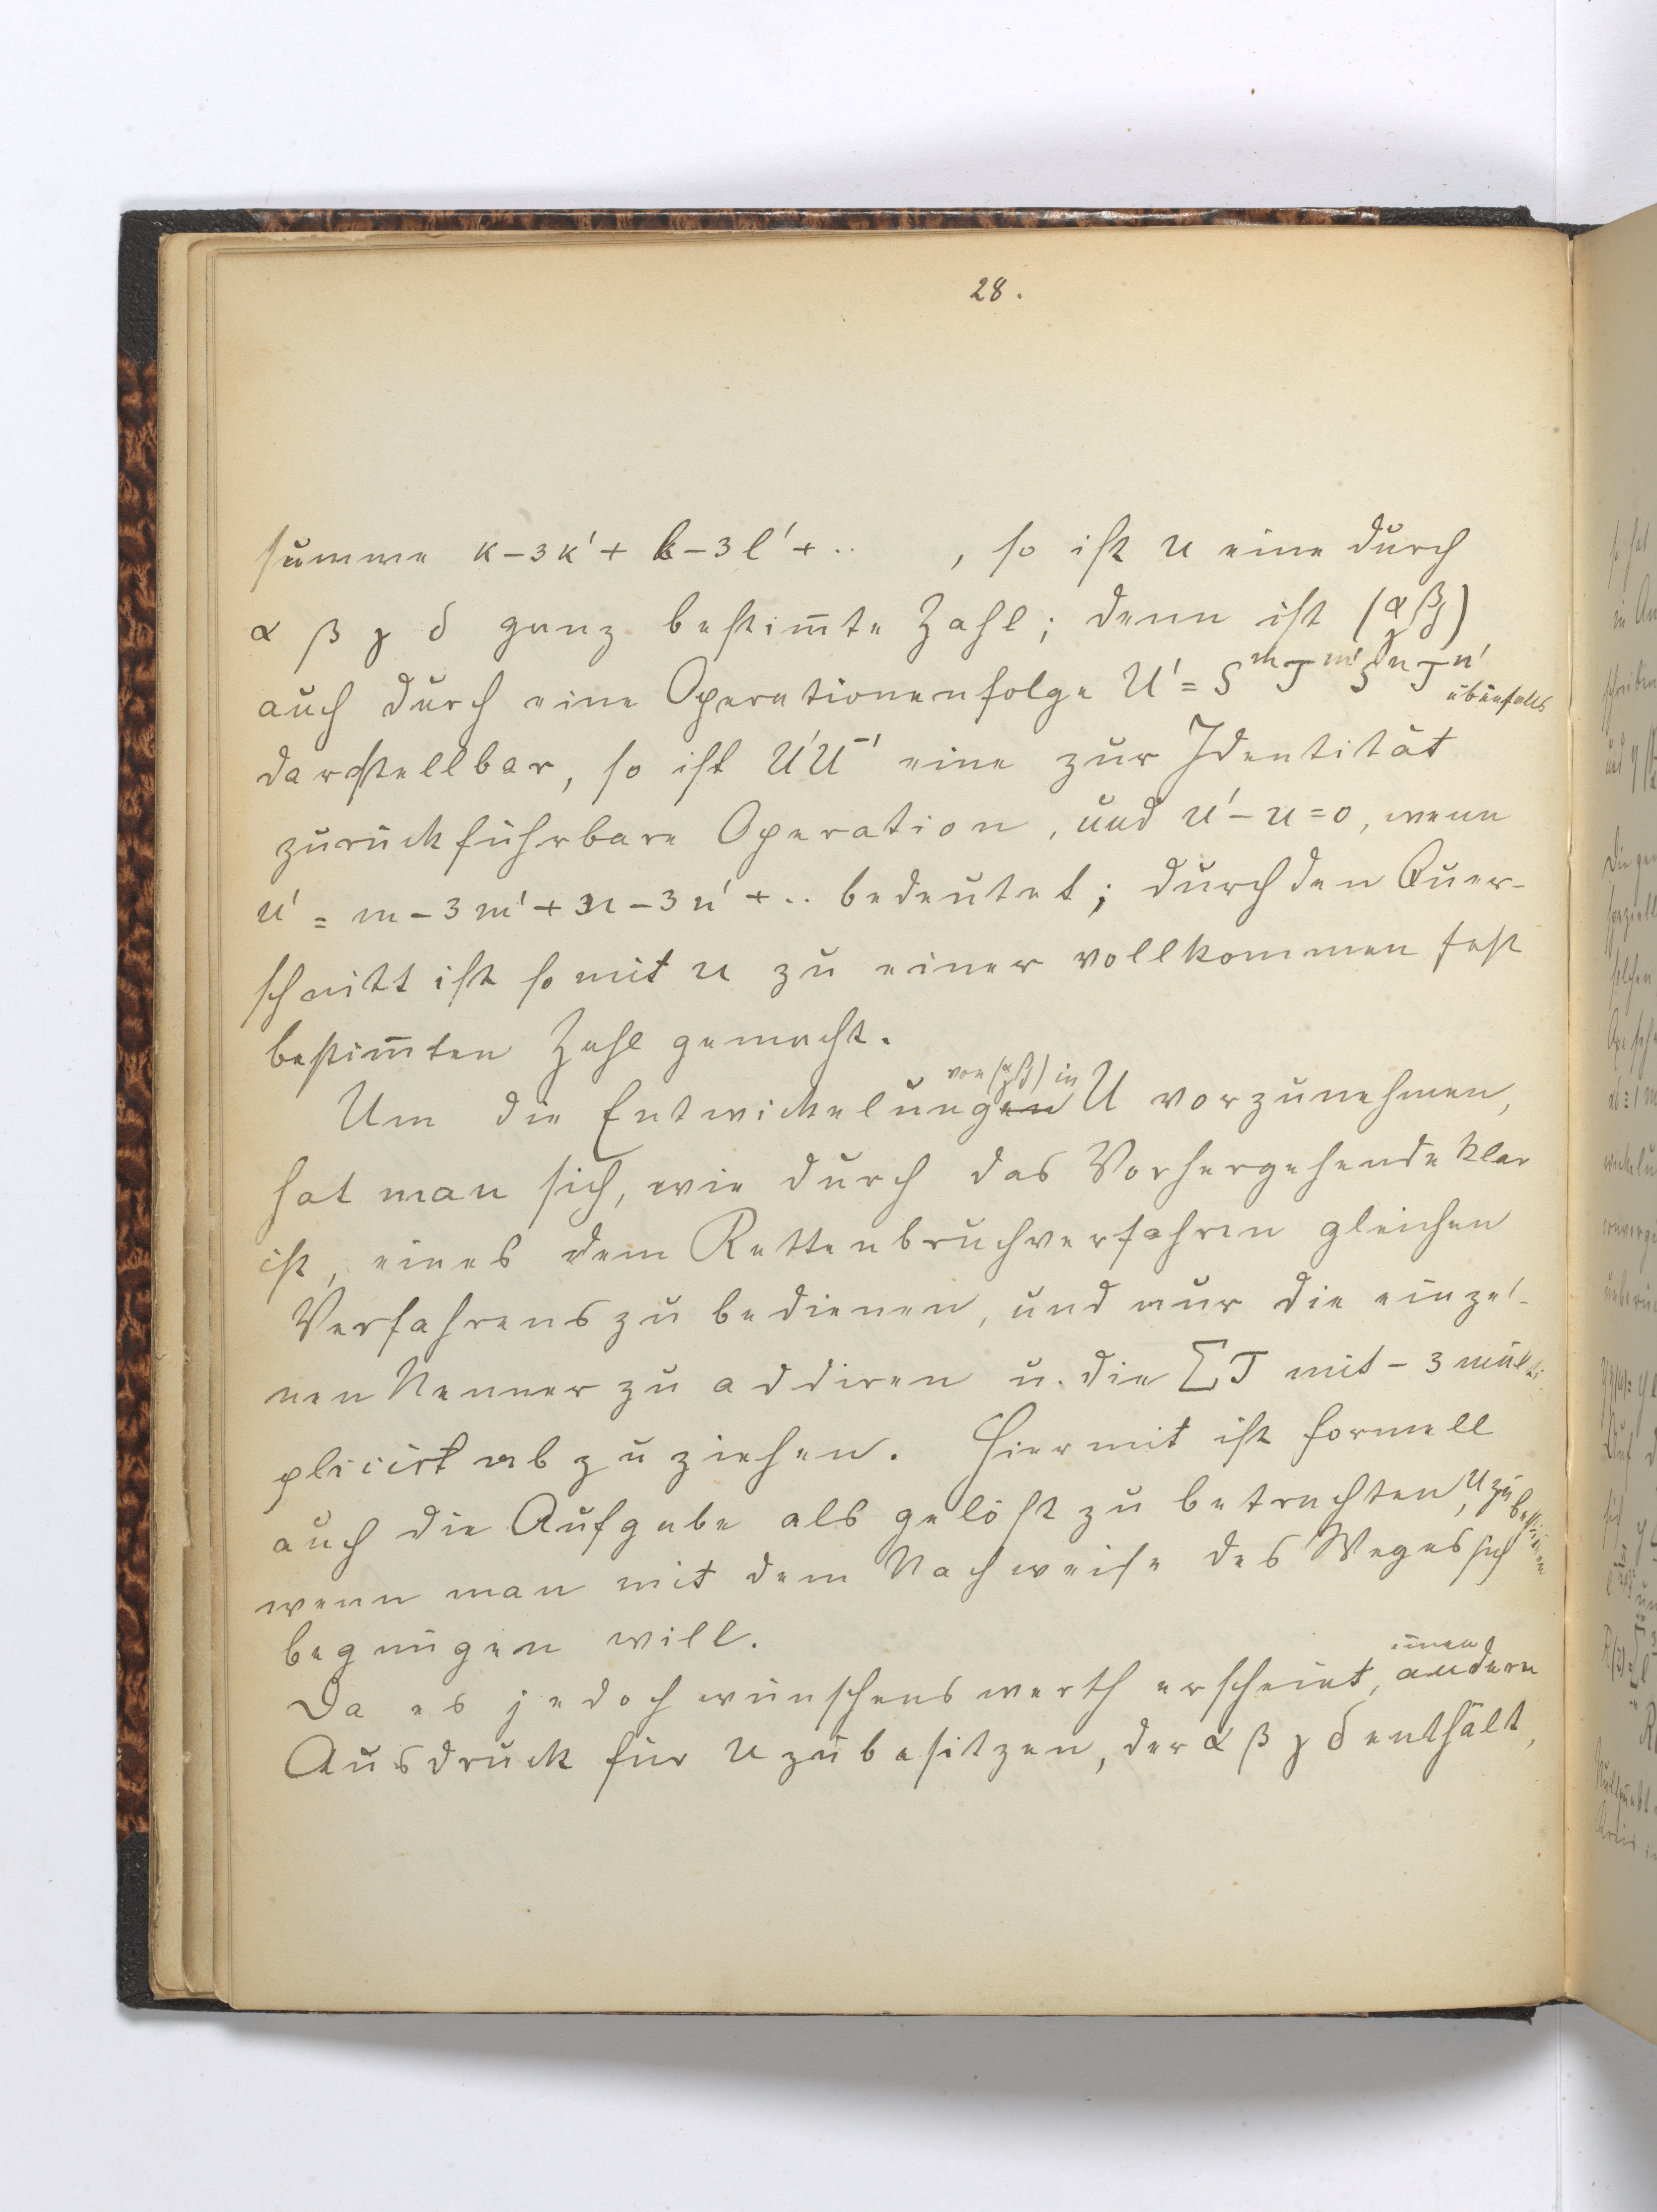 28.
summe κ-3κ'+ l-3l'+.. , so ist u eine durch
α β γ δ ganz bestim̅te Zahl; denn ist (α β γ δ)
auch durch eine Operationenfolge U' = S^m T^m' S^n T^n' ebenfalls
darstellbar, so ist U'U^-1 eine zur Identität
zurückführbare Operation, und u'-u=0, wenn
u' = m-3m'+n-3n'+.. bedeutet; durch den Quer-
schnitt ist somit u zu einer vollkommen fest
bestim̅ten Zahl gemacht.
Um die Entwickelungen von (α β γ δ) in U vorzunehmen,
hat man sich, wie durch das Vorhergehende klar
ist, eines dem Kettenbruchverfahren gleichen
Verfahrens zu bedienen, und nur die einzel-
nen Nenner zu addiren u. die ∑T mit -3 multi-
plicirt abzuziehen. Hiermit ist formell
auch die Aufgabe als gelöst zu betrachten, u zu bestim̅en
wenn man mit dem Nachweise des Weges sich
begnügen will.
Da es jedoch wünschenswerth erscheint, einen andern
Ausdruck für u zu besitzen, der α β γ δ enthält,